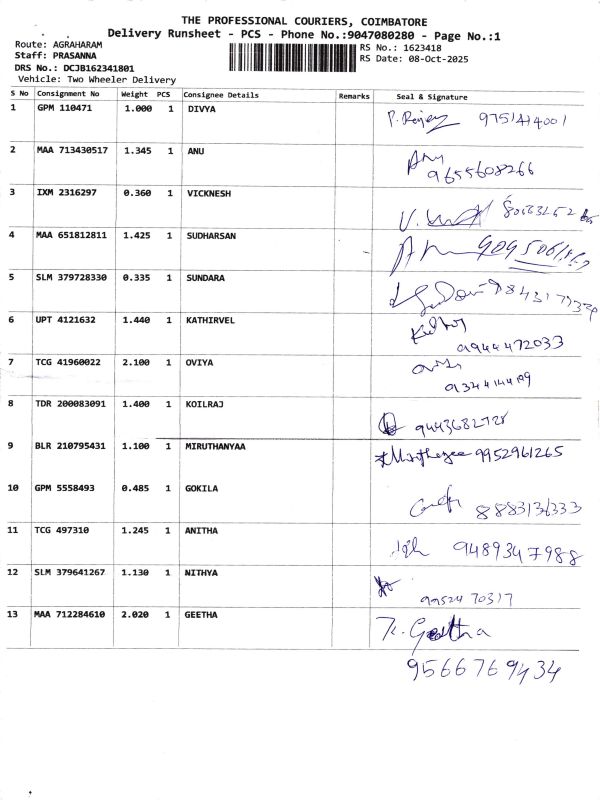 THE PROFESSIONAL COURIERS, COIMBATORE
Delivery Runsheet - PCS - Phone No.:9047080280 - Page No.:1
Route: AGRAHARAM RS No.: 1623418
Staff: PRASANNA RS Date: 08-Oct-2025
DRS No.: DCJB162341801
Vehicle: Two Wheeler Delivery
S No Consignment No Weight PCS Consignee Details Remarks Seal & Signature
1 GPM 110471 1.000 1 DIVYA 9751414001
2 MAA 713430517 1.345 1 ANU Anu
9655608266
3 IXM 2316297 0.360 1 VICKNESH
4 MAA 651812811 1.425 1 SUDHARSAN
5 SLM 379728330 0.335 1 SUNDARA
6 UPT 4121632 1.440 1 KATHIRVEL
9944472033
7 TCG 41960022 2.100 1 OVIYA
8 TDR 200083091 1.400 1 KOILRAJ 9443682728
9 BLR 210795431 1.100 1 MIRUTHANYAA 9952961265
10 GPM 5558493 0.485 1 GOKILA
11 TCG 497310 1.245 1 ANITHA 9489347988
12 SLM 379641267 1.130 1 NITHYA
9952470317
13 MAA 712284610 2.020 1 GEETHA K. Geetha
9566769434